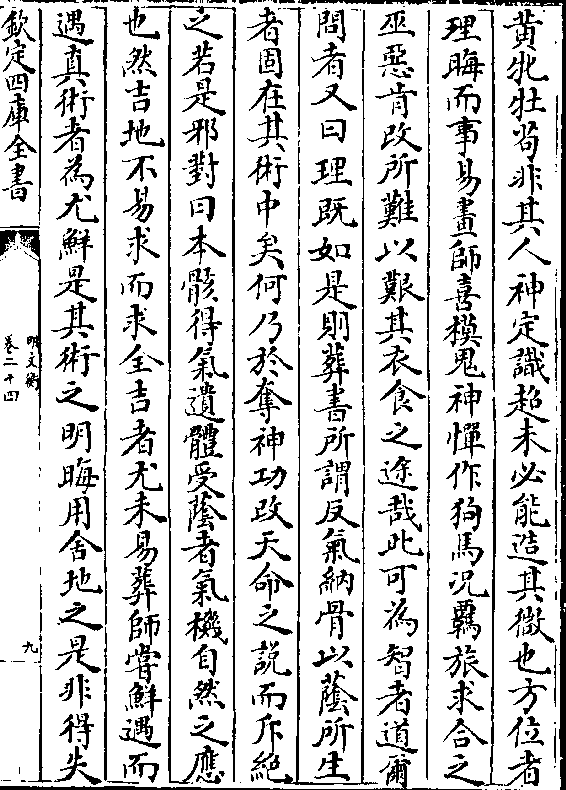 黄牝牡茍非其人神定識超未必能造其微也方位者
理晦而事易畫師喜模鬼神憚作狗馬况羇旅求合之
巫惡肯改所難以艱其衣食之途哉此可為智者道爾
問者又曰理既如是則葬書所謂反氣納骨以蔭所生
者固在其術中矣何乃於奪神功改天命之說而斥絶
之若是邪對曰本骸得氣遺體受蔭者氣機自然之應
也然吉地不易求而求全吉者尤未易葬師嘗鮮遇而
遇真術者為尤鮮是其術之明晦用舍地之是非得失
欽定四庫全書
明文衡
卷二十四
九